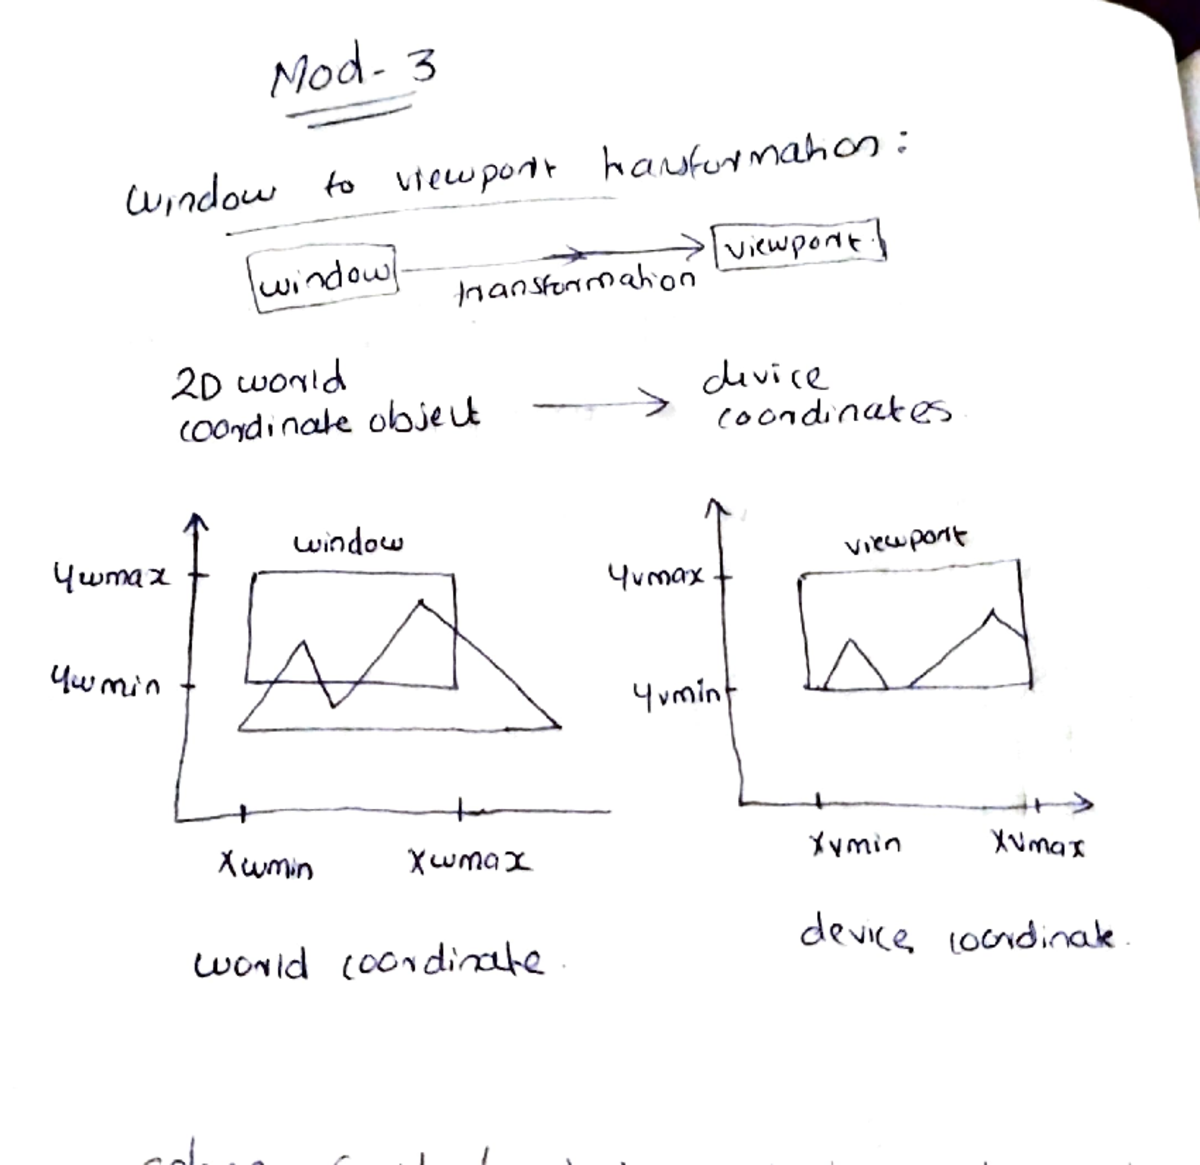 Mod-3
Window to viewport transformation:
window
transformation
viewport
2D world
coordinate object
device
coordinates
window
ywmax
ywmin
xwmin
xwmax
world coordinate
viewport
yvmax
yvmin
xvmin
xvmax
device coordinate